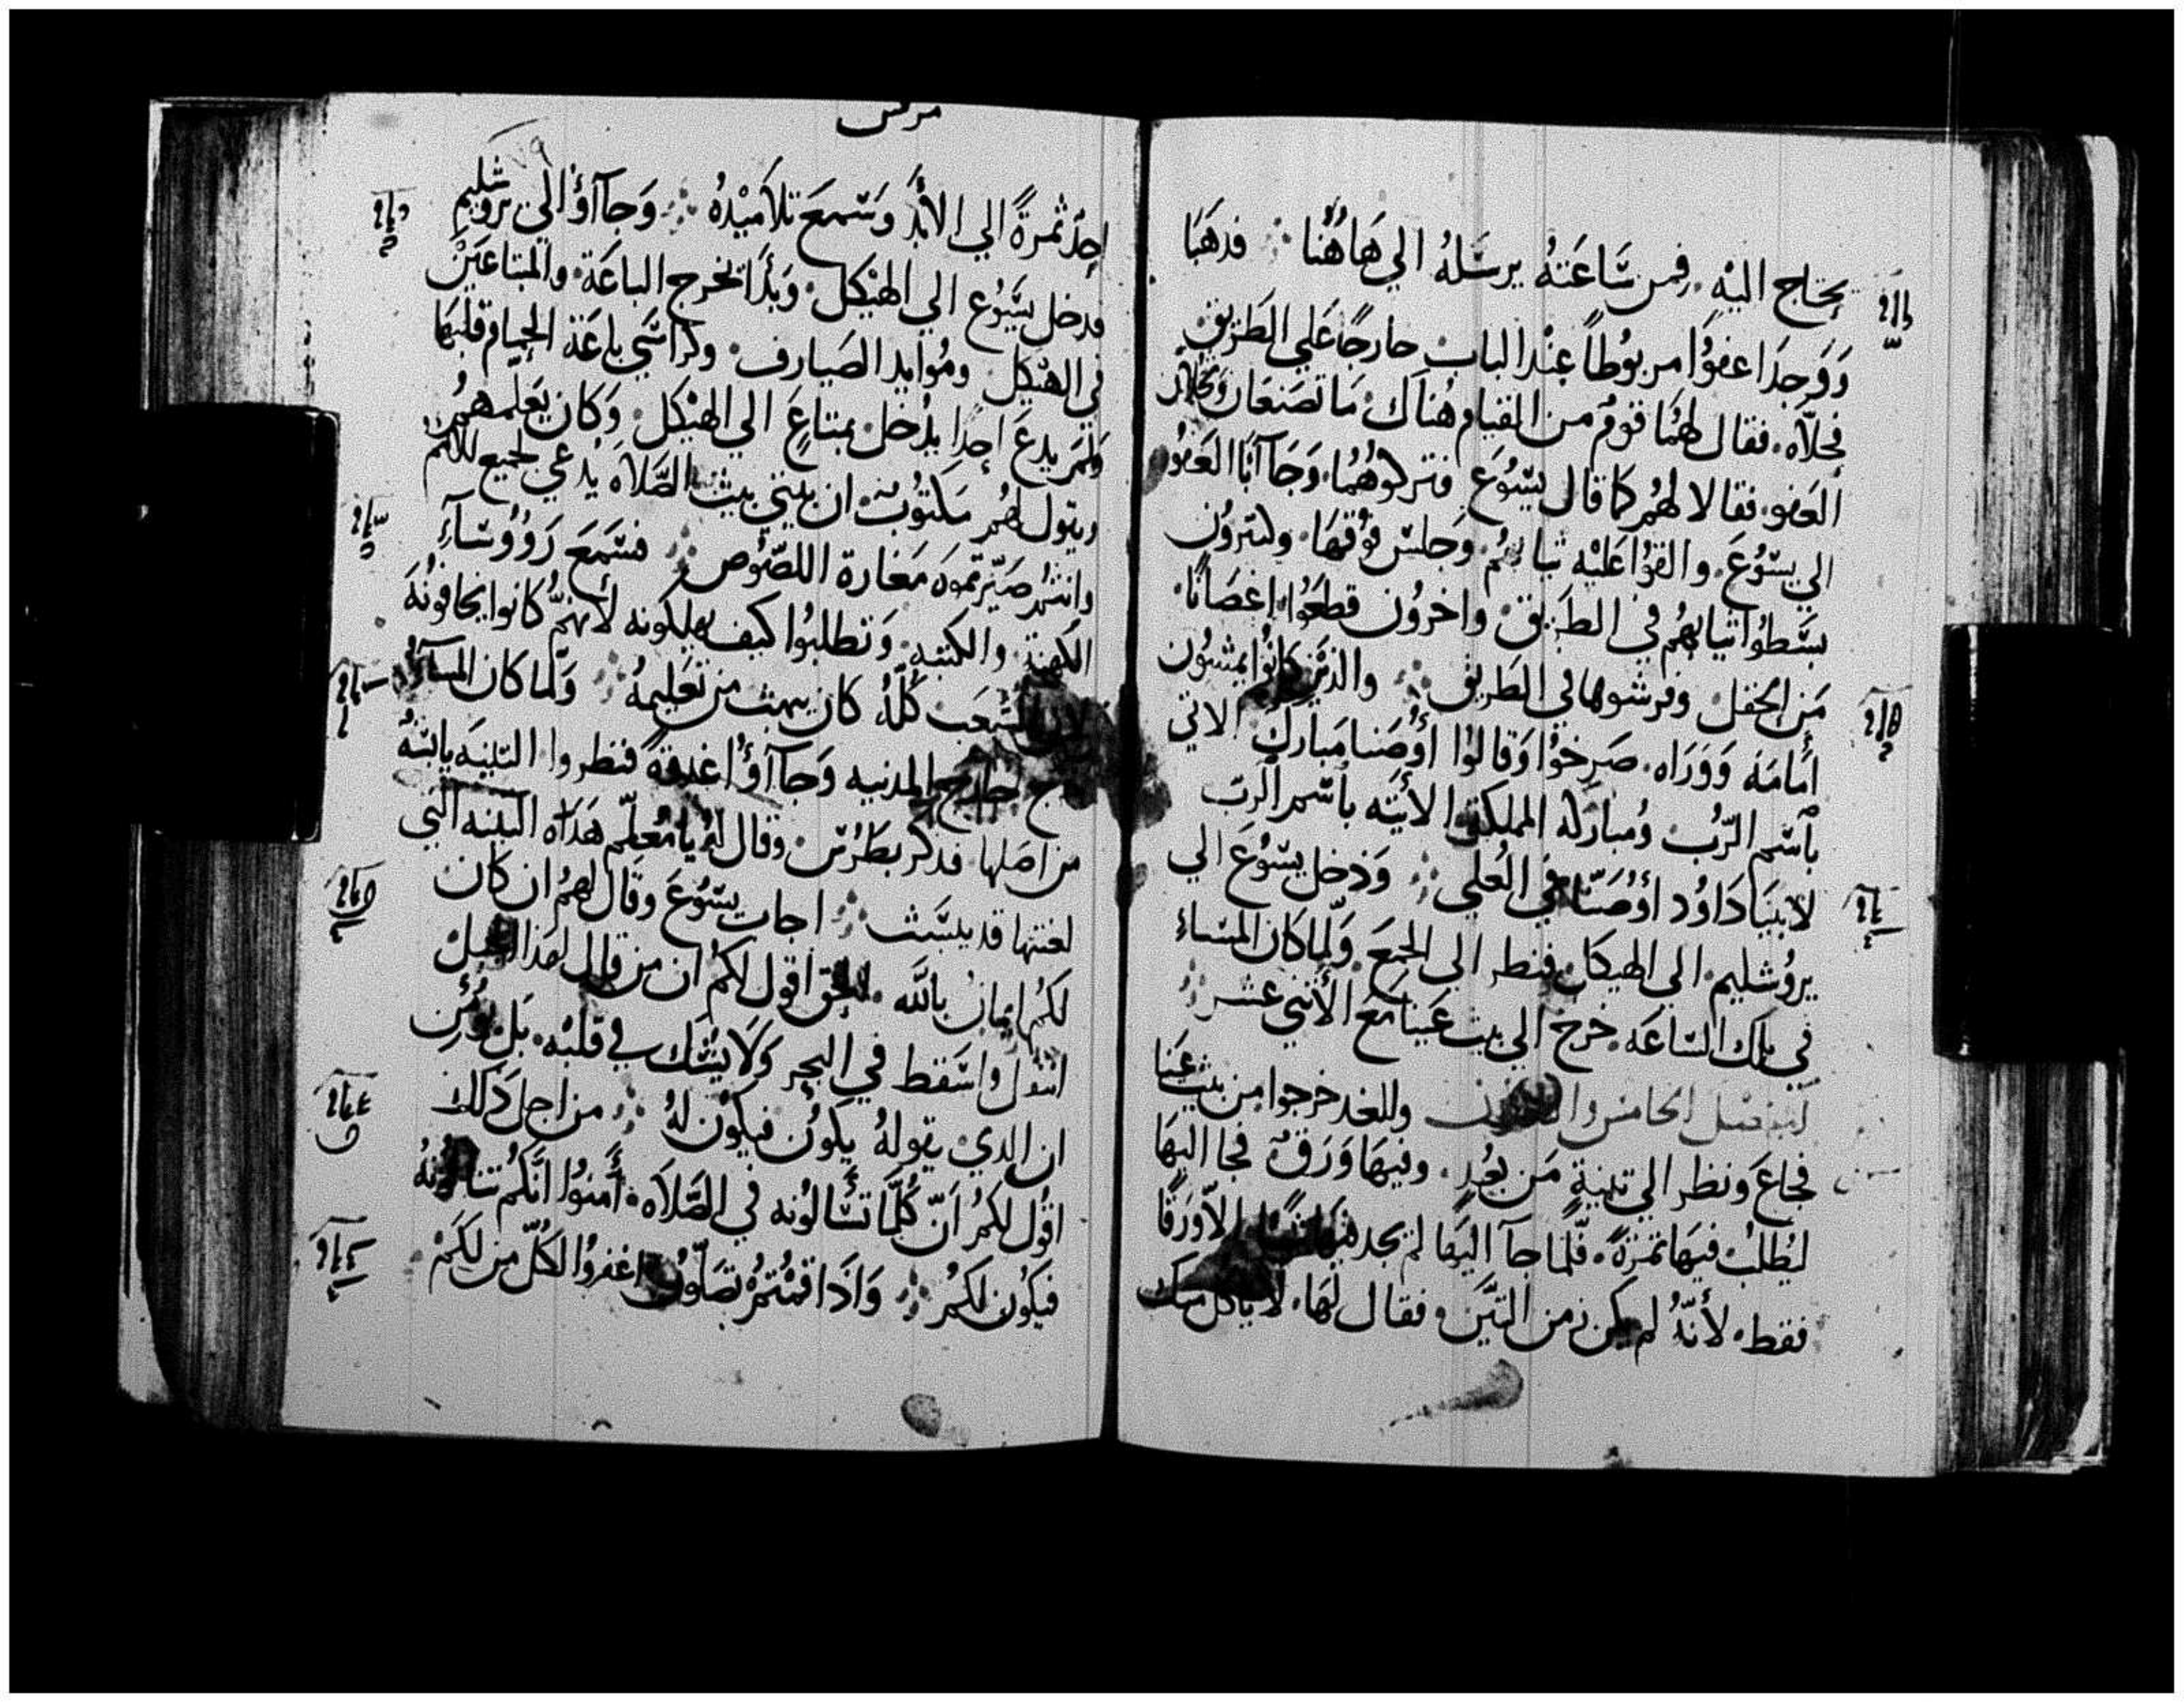 يحتاج اليه. فمن سَاعَتهُ يرسَلهُ الي هَاهُنا ⁘ فدهَبَا
وَوَجدَا عفوًا مربوُطاً عِنْدَ البابِ خارجًا عَلي الطَريق
فحَلّاه. فقال لهُمَا قومٌ من القيام هُنَاك. مَا تصَنعَان وَتحَلّان
العَفو. فقالا لهُم كما قال يسَوُعَ فتركوُهُمَا. وَجَاآنَا العَفو
الي يسَوُعَ. والقوُا عَليْه ثيابهُم. وَجلسَ فوْقهَا. وكتيروُن
بسَطوُا ثيابهُم في الطَريق. واخروُن قطعَوُا اغصَانًا.
مَن الحَقل. وفرشوها في الطَريق ⁘ والديْن كانوُا يمشوُن
أمَامَه وَوَرَاه. صَرخوُا وَقالوُا أوُصَنا مَبارك الاتي
بأسَم الرَّبُ. وُمباركه المملكة الأتيَه بأسَم الرَبّ
لابينَا دَاوُد أوُصَنّا في العُلي ⁘ وَدخل يسَوُعَ الي
يروُشليم. الي الهيكل. فنظر الي الجميَع. وَلمّا كان المسَاء
في تلك السَاعَه. خرج الي بيت عَينا مَع الأثني عشر ⁘
الفصَل الخامس والثلاثون وللغد خرجوا من بيت عَنيا
فجاعَ ونظر الي تينةٍ مَن بعُدٍ. وفيهَا وَرَقٌ فجا اليهَا
ليُطلبُ فيهَا ثمرَةً. فلّما جآ اليَها لم يجد فيهَا شيًا الاّ وَرَقًا
فقط. لأنّهُ لم يكن زمن التيَّن. فقال لهَا. لا يَاكل منك
مرقس
احِدٌ ثمرةً الي الابَدْ وَسَمعَ تلاميْدهُ ⁘ وَجاآوُا الي يروشليم
فدخل يسَوُع الي الهيْكل. وَبدَا يخرج الباعَة. والمبتاعَيْن
في الهيْكل. ومُوايد الصَيارف. وكراسَي باعَة الحمام قلبَها
وَلم يدعَ احِدًا يدُخل بمتاعَ الي الهيْكل. وَكان يعَلمهمُ
ويتول لهُم مَكتوُب ان بيتي بيث الصَّلاه يُدعي لجميع الأمم
وانتُم صَيّرتموه مَغارة اللصَوُص ⁘ فسَمعَ رَوُوسَآءِ
الكهنة. والكتبَه. وَتطلبوُا كيف يهلكونه لأنهمُ كانوا يخافونهَ
لان الشعَب كلّهُ كان يبهث من تعَليمهُ ⁘ وَلما كان المسآ
خارج المدنيه وَجاآوُا غدوةً فنظروا التينَه يابسَهُ
من اصَلها فدكر بطرُسَ. وقال لهُ يا مُعلّم هَدَاه التينه التي
لعنتها قد يبسَث ⁘ اجابَ يسَوُعَ وقال لهمُ ان كان
لكُم ايمانُ بالله. الحق اقول لكمُ ان من قال لهذا الجبل
انتقل واسَقط في البحر وَلَا يشك في قلبْه. بَل يؤمن
ان الدي يقولهُ يكوُن فيكوُن لهُ ⁘ من اجل دَلك
اقوُل لكمُ انّ كلّما تسَالوُنه في الصَّلاَه. أمنوُا انَّكمُ تنالوُنهُ
فيكوُن لكمُ ⁘ وَادَا قمْتُمُ تصَلّوُن اغفروُا لكلّ من لكمُ